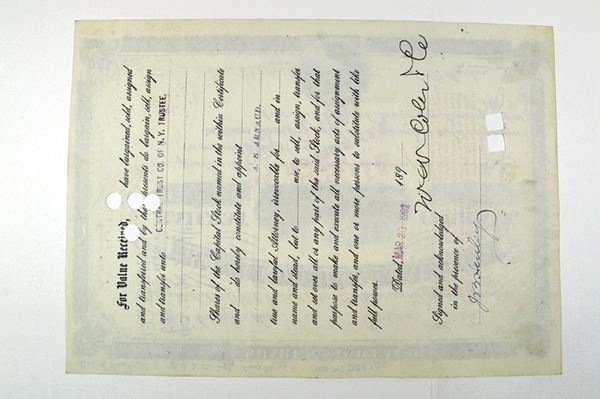 For Value Received, have bargained, sold, assigned
and transferred and by these presents do bargain, sell, assign
and transfer unto CENTRAL TRUST CO. OF N.Y. TRUSTEE,
Shares of the Capital Stock named in the within Certificate
and do hereby constitute and appoint
A. K. ARNAUD.
true and lawful Attorney, irrevocable for and in
name and stead, but to use, to sell, assign, transfer
and set over all or any part of the said Stock, and for that
purpose to make and execute all necessary acts of assignment
and transfer, and one or more persons to substitute with like
full power.
Dated, MAR 29 1901 189
Signed and acknowledged
in the presence of